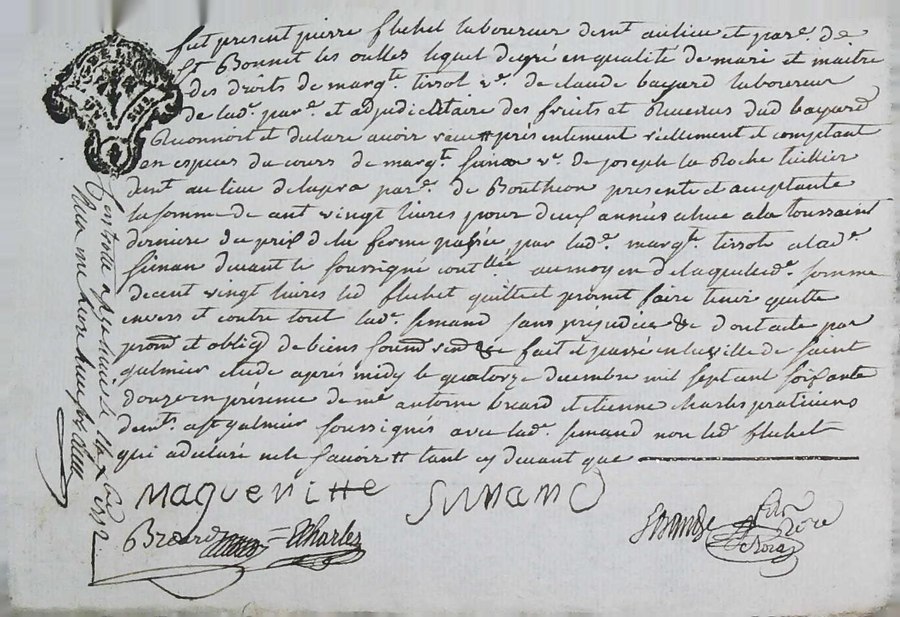 fut present pierre fluhet laboureur demt au lieu et parse de
St Bonnet les oulles lequel degré en qualité de mari et maitre
des droits de margte tissot ve de claude bayard laboureur
de lade parse et adjudicataire des fruits et Revenus dud bayard
Reconnoit et declare avoir reçu présentement réellement et comptant
en espèces du cours de margte simon ve de joseph la Roche
demt au lieu de lapra parse de Bouthéon présente et acceptante
la somme de cent vingt livres pour deux années échue a la toussaint
derniere du prix de la ferme passée par lade margte tissot a lade
simon devant le soussigné au moyen de laquelle de somme
de cent vingt livres led fluhet quitte et promet faire tenir quitte
envers et contre tout lade simand sans préjudice & dont acte par
prom et oblig de biens soum ren & fait et passé en la ville de saint
galmier etude après midy le quatorze decembre mil sept cent soixante
douze en présence de me antoine breard et etienne charles praticiens
demts a st galmier soussignés avec lade simand non led fluhet
qui a declaré ne le savoir tant cy devant que
Magueritte Sumand
Breard Charles
Contrôlé a st galmier le Xbre 1772
Reçu une livre